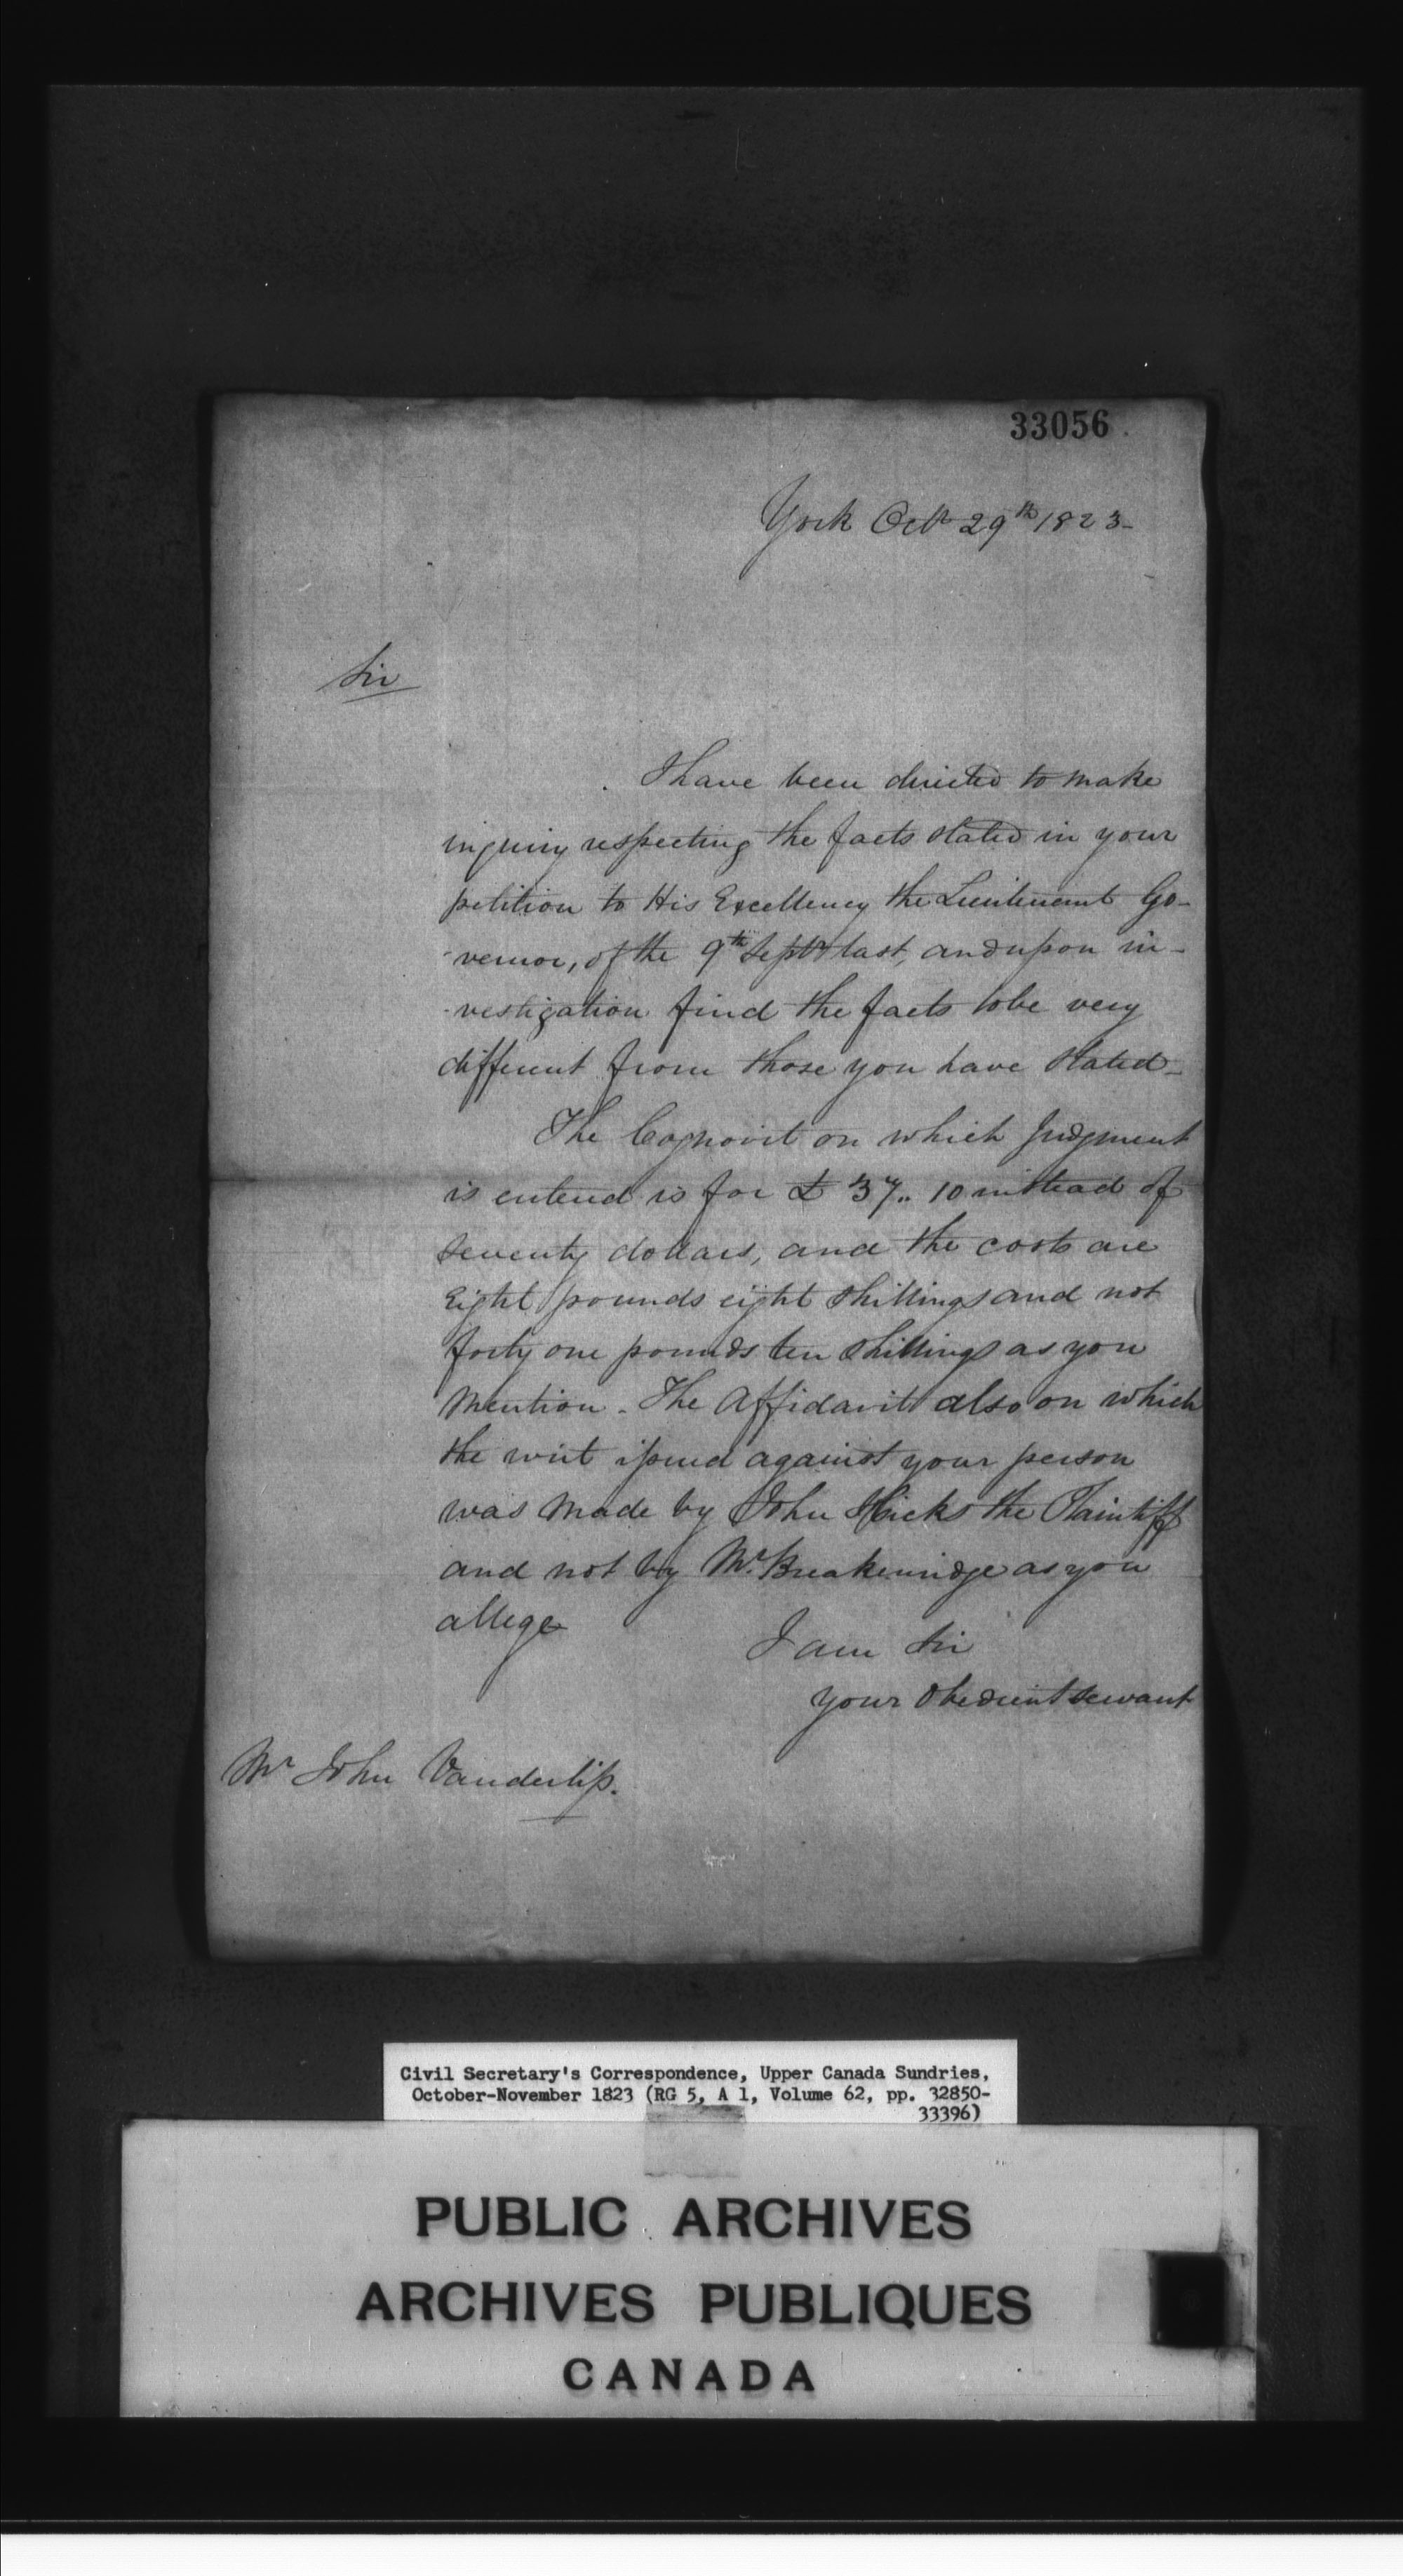 33056
York Octr 29th 1823-
Sir
I have been directed to make
inquiry respecting the facts stated in your
petition to His Excellency the Lieutenant Go-
-vernor, of the 9th Septr last, and upon in-
-vestigation find the facts to be very
different from those you have stated-
The Cognovit on which Judgment
is entered is for £ 37.. 10 instead of
seventy dollars, and the costs are
Eight pounds eight shillings and not
forty one pounds ten shillings as you
mention. The Affidavit also on which
the writ issued against your person
was made by John Hicks the Plaintiff
and not by Mr. Breakenridge as you
allege
I am Sir
your obedient servant
Mr John Vanderlip.
Civil Secretary's Correspondence, Upper Canada Sundries,
October-November 1823 (RG 5, A 1, Volume 62, pp. 32850-
33396)
PUBLIC ARCHIVES
ARCHIVES PUBLIQUES
CANADA